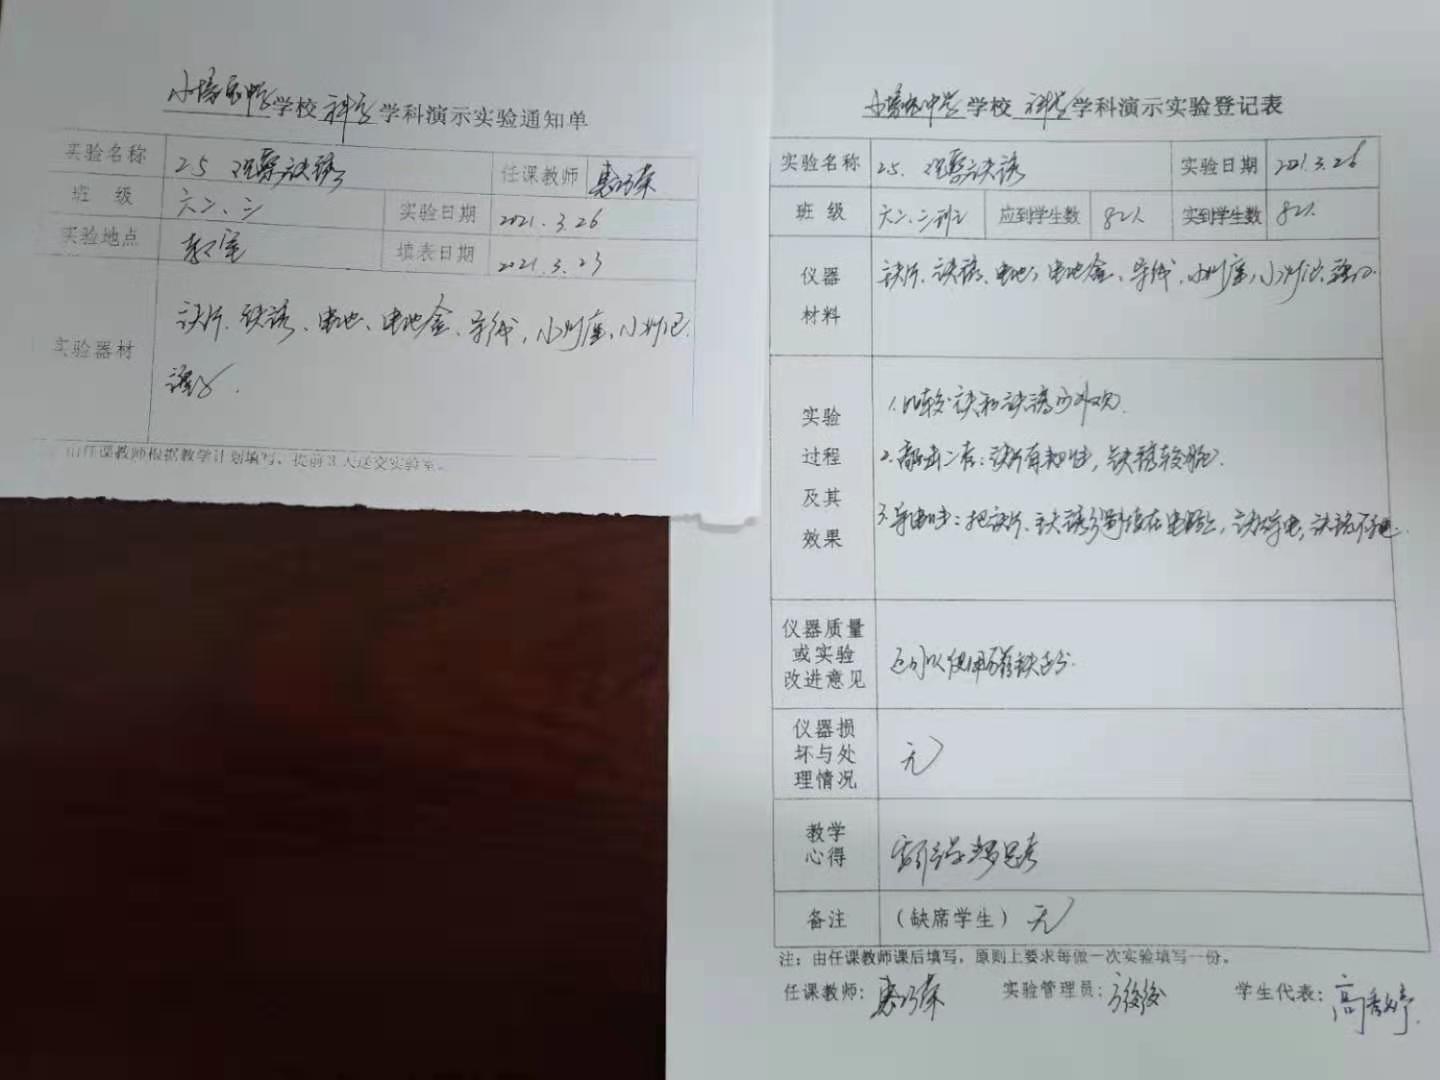 学校 科学 学科演示实验通知单
实验名称 25 观察铁锈 任课教师
班 级 六二、三 实验日期 2021.3.26
实验地点 教室 填表日期 2021.3.23
实验器材 铁片、铁锈、电池、电池盒、导线,小灯座,小灯泡.
由任课教师根据教学计划填写,提前3天送交实验室。
中学 学校 科学 学科演示实验登记表
实验名称 25. 观察铁锈 实验日期 2021.3.26
班 级 六二、三班 应到学生数 82人 实到学生数 82人
仪器 材料 铁片、铁锈、电池、电池盒、导线,小灯座,小灯泡、
实验 过程 及其 效果
1.比较铁和铁锈的外观.
2.敲击二者:铁片有韧性,铁锈较脆.
3.导电性:把铁片、铁锈分别接在电路上,铁片导电,铁锈不导电.
仪器质量 或实验 改进意见 还可以使用磁铁区分.
仪器损 坏与处 理情况 无
教学 心得 多思考
备注 (缺席学生) 无
注:由任课教师课后填写,原则上要求每做一次实验填写一份。
任课教师: 实验管理员: 学生代表:高